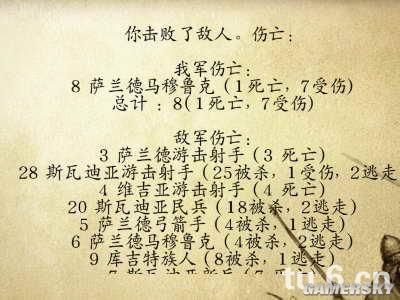 你击败了敌人。伤亡：
我军伤亡：
8 萨兰德马穆鲁克 (1死亡，7受伤)
总计 ：8(1死亡，7受伤)
敌军伤亡：
3 萨兰德游击射手 (3 死亡)
28 斯瓦迪亚游击射手 (25被杀，1受伤，2逃走
4 维吉亚游击射手 (4 死亡)
20 斯瓦迪亚民兵 (18被杀，2逃走)
5 萨兰德弓箭手 (4被杀，1逃走)
6 萨兰德马穆鲁克 (4被杀，2逃走)
9 库吉特族人 (8被杀，1逃走)
斯瓦迪亚新兵
GAMERSKY